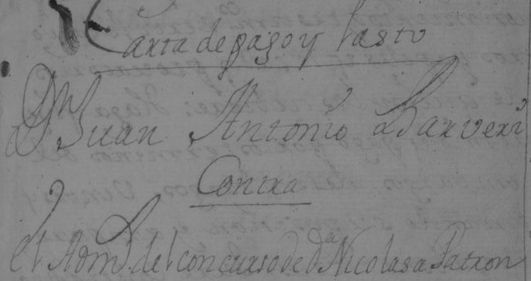 Carta de pago y lasto
Dn Juan Antonio Ldarveri
Contra
el Admr. del concurso de da Nicolasa Patron